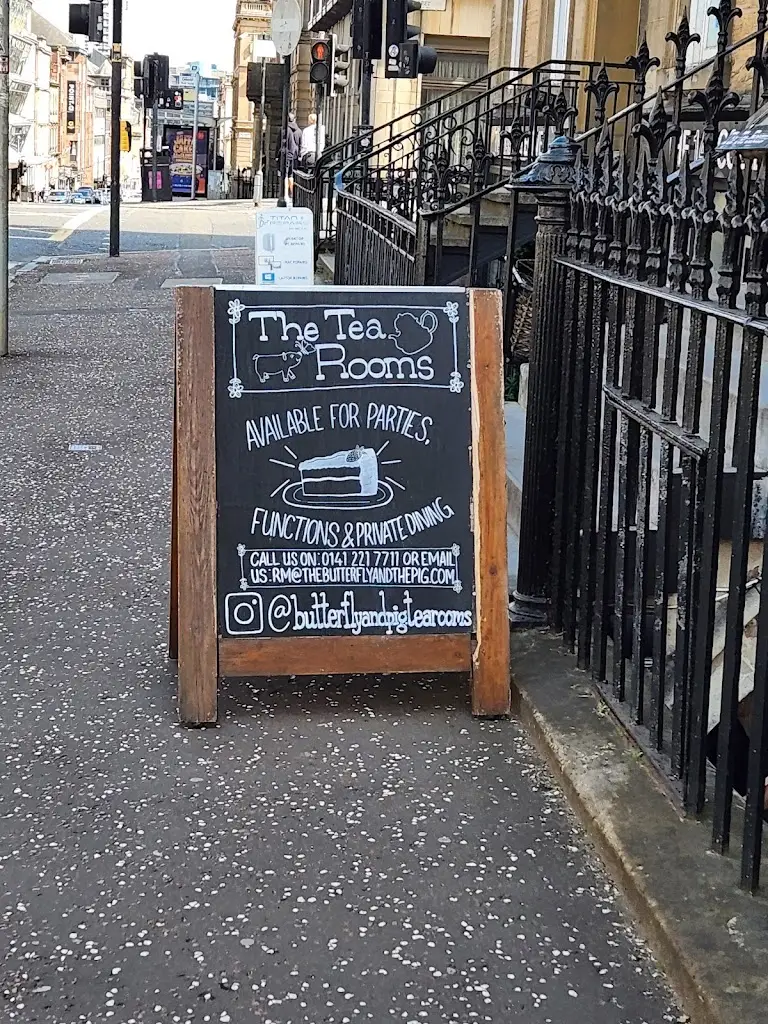 The Tea
Rooms
AVAILABLE FOR PARTIES,
FUNCTIONS & PRIVATE DINING
CALL US ON: 0141 221 7711 OR EMAIL
US: RM@THEBUTTERFLYANDTHEPIG.COM
@butterflyandpigtearooms